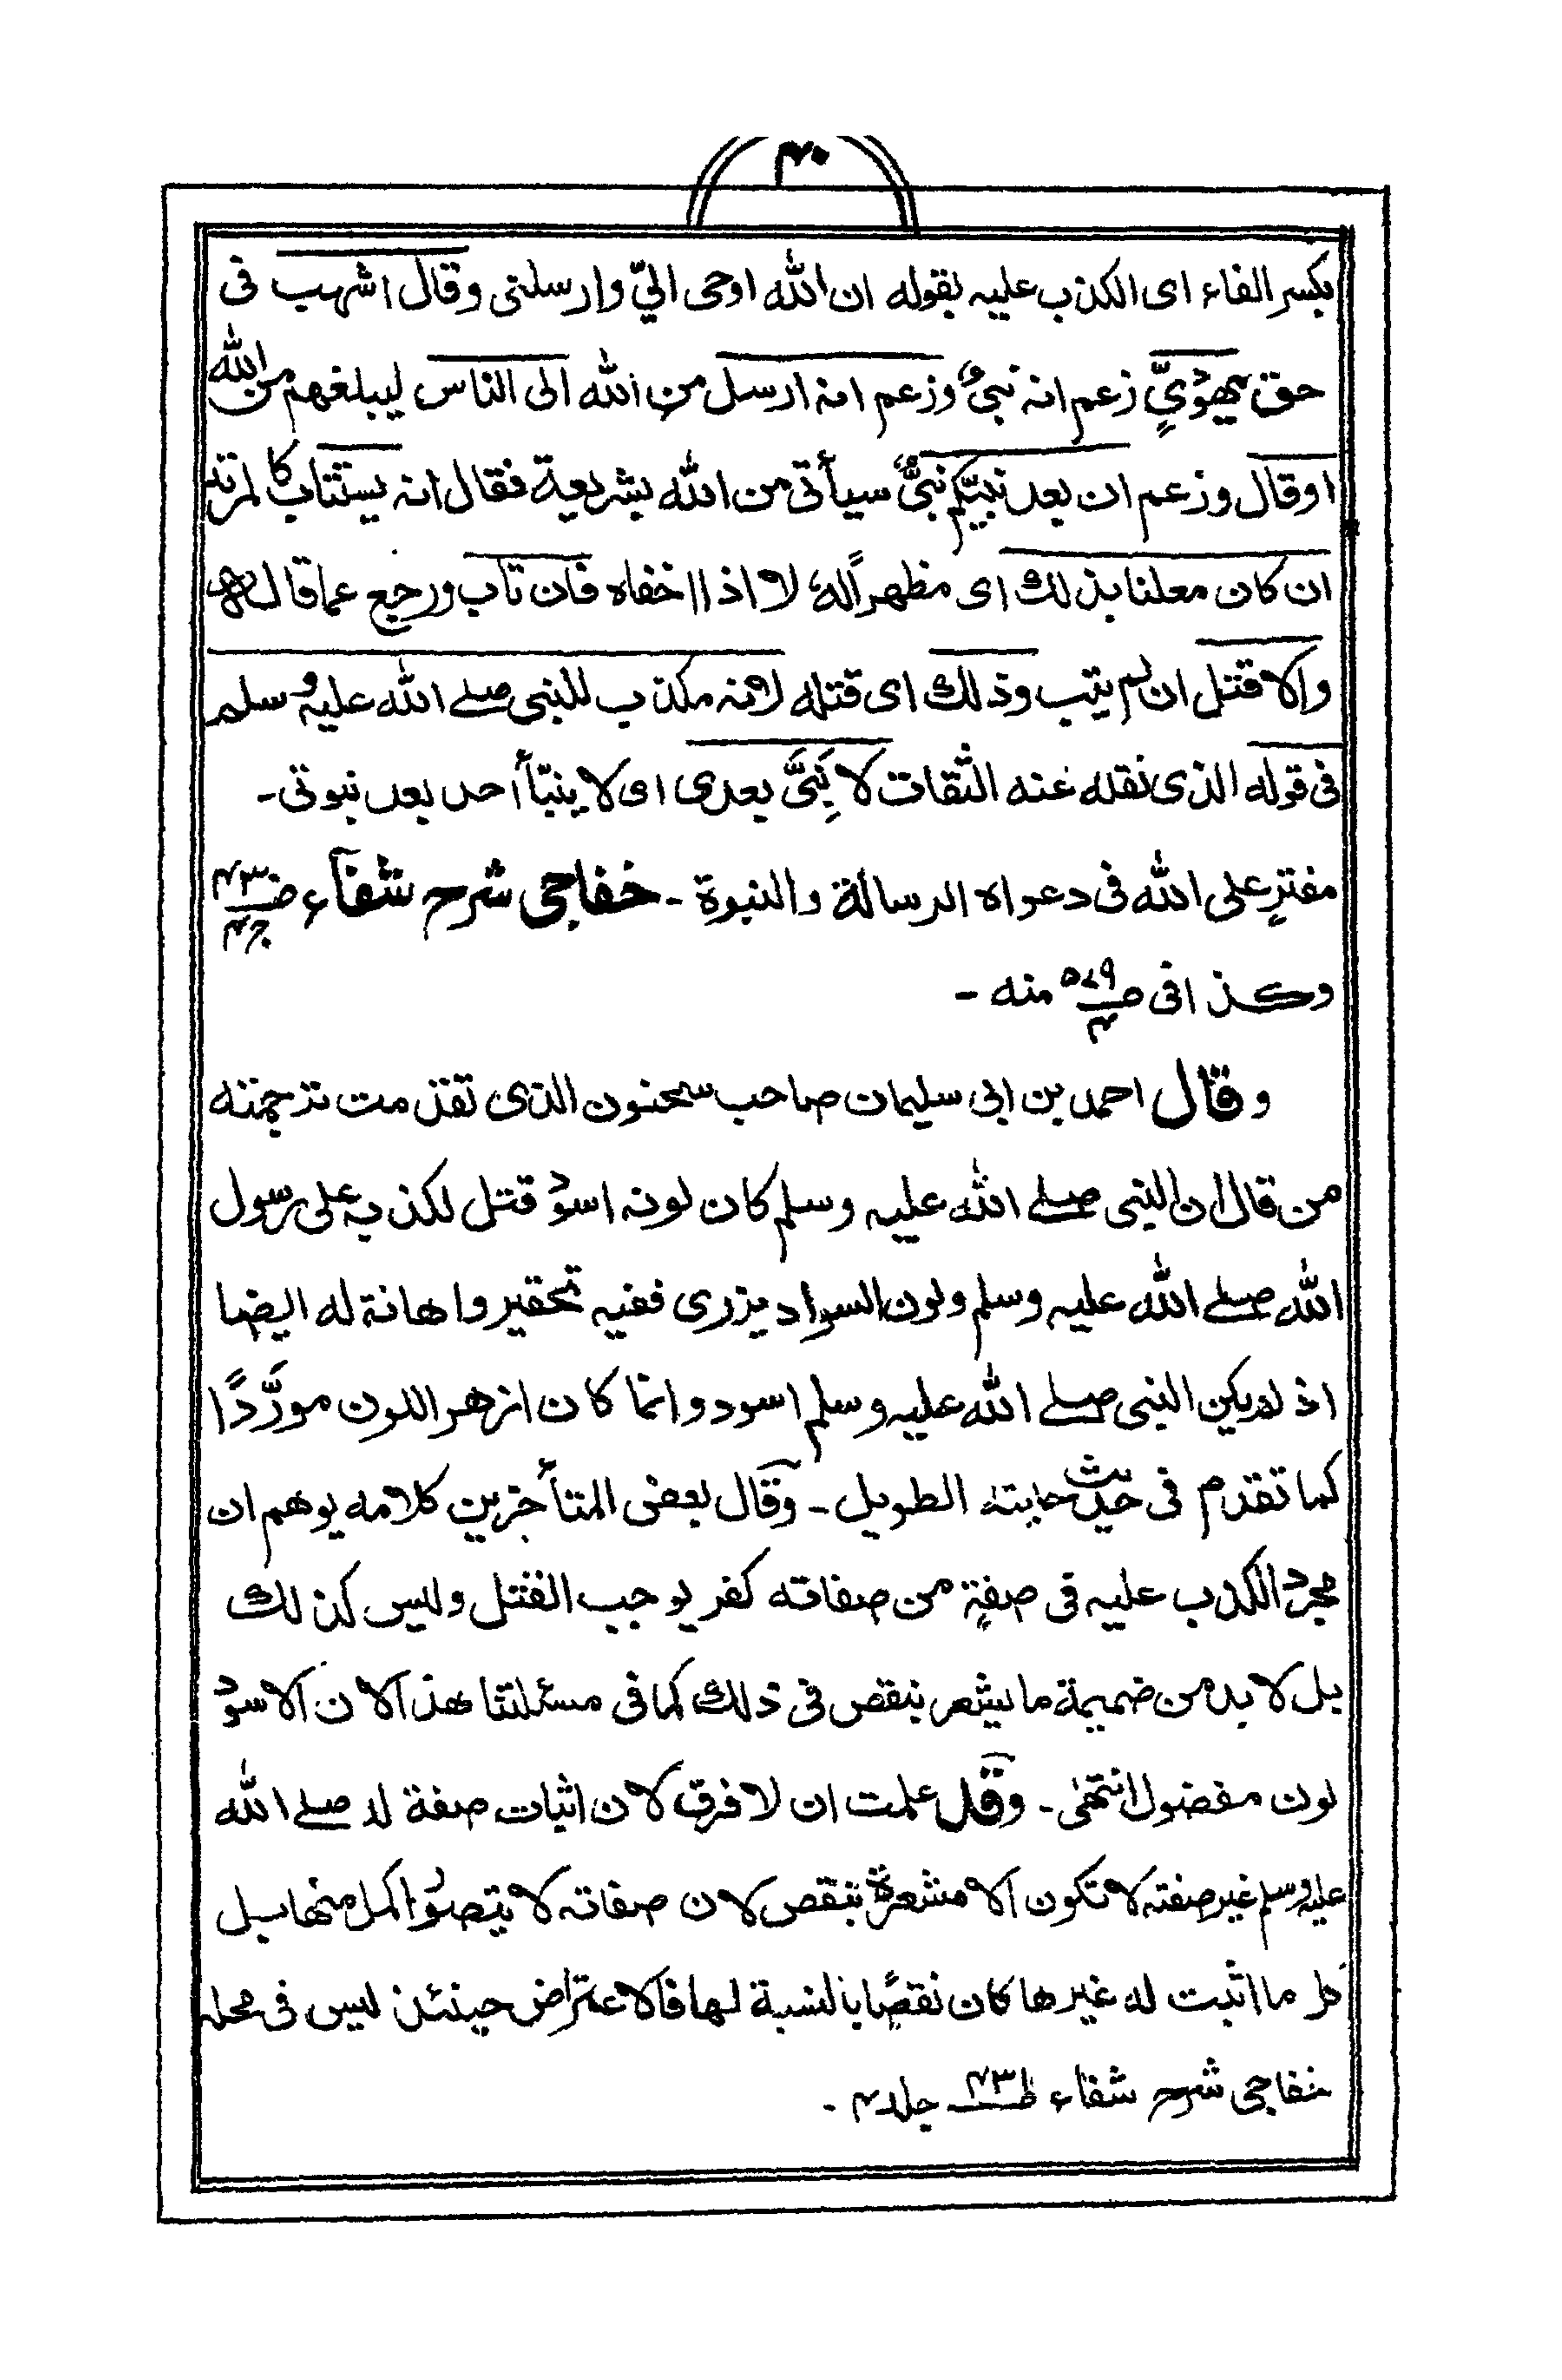 ۴۰
بكسر الفاء اى الكذب عليه بقوله ان الله اوحى اليّ وارسلنى وقال اشهب فى
حق يهوديٍّ زعم انه نبيٌ وزعم انه ارسل من الله الى الناس ليبلغهم من الله
اوقال وزعم ان بعد نبيّكم نبيٌّ سيأتى من الله بشريعة فقال انه يستتاب كالمرتد
ان كان معلنا بذلك اى مظهراً له لا اذا اخفاه فان تاب ورجع عما قال
والا قتل ان لم يتب وذلك اى قتله لانه مكذب للنبى صلے الله عليه وسلم
فى قوله الذى نقله عنه الثقات لا نَبِىَّ بعدى اى لا ينبّأ احد بعد نبوتى۔
مفترٍ على الله فى دعواه الرسالة والنبوة ۔ خفاجى شرح شفآء صـ ۴۳ ج ۴
وكذا فى صـ ۵۷۹ ۴ منه ۔
وقال احمد بن ابى سليمان صاحب سحنون الذى تقدمت ترجمته
من قال ان النبى صلے الله عليه وسلم كان لونه اسود قتل لكذبه على رسول
الله صلے الله عليه وسلم ولون السواد يزرى ففيه تحقير واهانة له ايضا
اذ لم يكن النبى صلے الله عليه وسلم اسود وانما كان ازهر اللون مورَّدًا
كما تقدم فى حديث حليته الطويل ۔ وقال بعض المتأخرين كلامه يوهم ان
مجرد الكذب عليه فى صفةٍ من صفاته كفر يوجب القتل وليس كذلك
بل لا بد من ضميمة ما يشعر بنقص فى ذلك كما فى مسئلتنا هذه الان الاسود
لون مفضول انتهٰى ۔ وقد علمت ان لا فرق لان اثبات صفة له صلے الله
عليه وسلم غير صفته لا تكون الا مشعرة بنقص لان صفاته لا يتصور اكمل منها بل
كل ما اثبت له غيرها كان نقصًا بالنسبة لها فالاعتراض حينئذ ليس فى محله
خفاجى شرح شفاء صـ ۴۳ جلد ۴ ۔